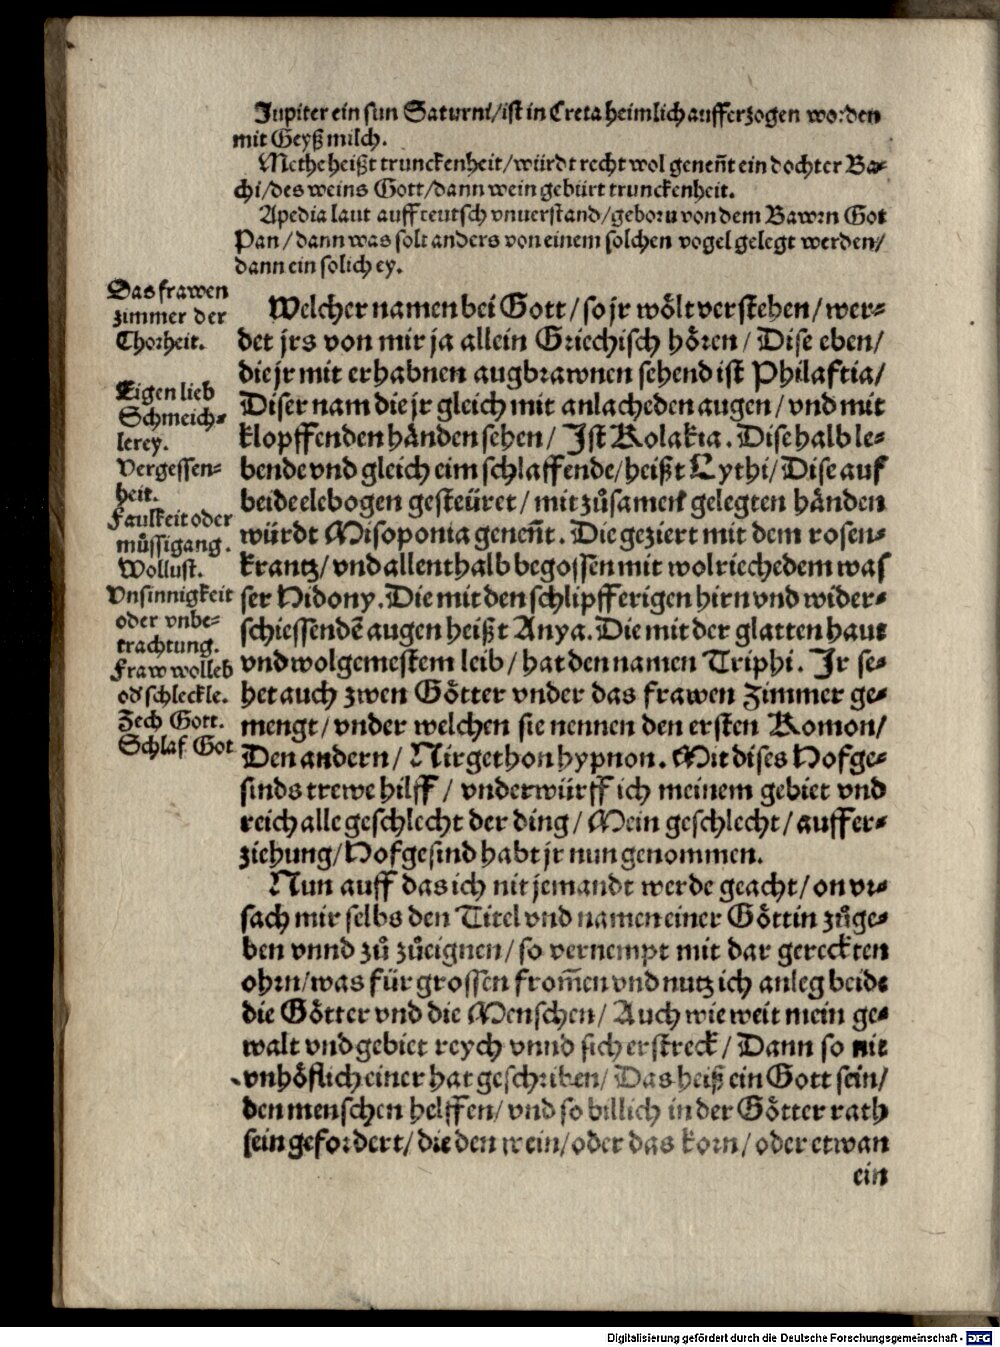 Jupiter ein sun Saturni/ist in Creta heimlich aufferzogen worden
mit Geyß milch.
Methe heißt trunckenheit/würdt recht wol geneñt ein dochter Ba-
chi/des weins Gott/dann wein gebürt trunckenheit.
Apedia laut auff teutsch vnuerstand/geborn von dem Bawrn Got
Pan/dann was solt anders von einem solchen vogel gelegt werden/
dann ein solich ey.
Das frawen
zimmer der
Thorheit.
Eigen lieb
Schmeich-
lerey.
Vergessen-
heit.
Faulkeit oder
müssigang.
Wollust.
Vnsinnigkeit
oder vnbe-
trachtung.
Fraw wolleb
od schleckle.
Zech Gott.
Schlaf Got
Welcher namen bei Gott/so jr wölt verstehen/wer-
det jrs von mir ja allein Griechisch hören/Dise eben/
die jr mit erhabnen augbrawnen sehend ist Philaftia/
Diser nam die jr gleich mit anlacheden augen/vnd mit
klopffenden händen sehen/Ist Kolakia. Dise halb le-
bende vnd gleich eim schlaffende/heißt Lythi/Dise auf
beide elebogen gesteüret/mit zůsamen gelegten händen
würdt Misoponia geneñt. Die geziert mit dem rosen-
krantz/vnd allenthalb begossen mit wolriechedem was
ser Hidony. Die mit den schlipfferigen hirn vnd wider-
schiessendē augen heißt Anya. Die mit der glatten haut
vnd wolgemestem leib/hat den namen Triphi. Ir se-
het auch zwen Götter vnder das frawen zimmer ge-
mengt/vnder welchen sie nennen den ersten Komon/
Den andern/Nirgethon hypnon. Mit dises Hofge-
sinds trewe hilff/vnderwürff ich meinem gebiet vnd
reich alle geschlecht der ding/Mein geschlecht/auffer-
ziehung/Hofgesind habt jr nun genommen.
Nun auff das ich nit jemandt werde geacht/on vr-
sach mir selbs den Titel vnd namen einer Göttin zůge-
ben vnnd zů zůeignen/so vernempt mit dar gereckten
ohrn/was für grossen from̃en vnd nutz ich anleg beide
die Götter vnd die Menschen/Auch wie weit mein ge-
walt vnd gebiet reych vnnd sich erstreck/Dann so nit
vnhöflich einer hat geschriben/Das heiß ein Gott sein/
den menschen helffen/vnd so billich in der Götter rath
sein gefordert/die den wein/oder das korn/oder etwan
ein
Digitalisierung gefördert durch die Deutsche Forschungsgemeinschaft - DFG